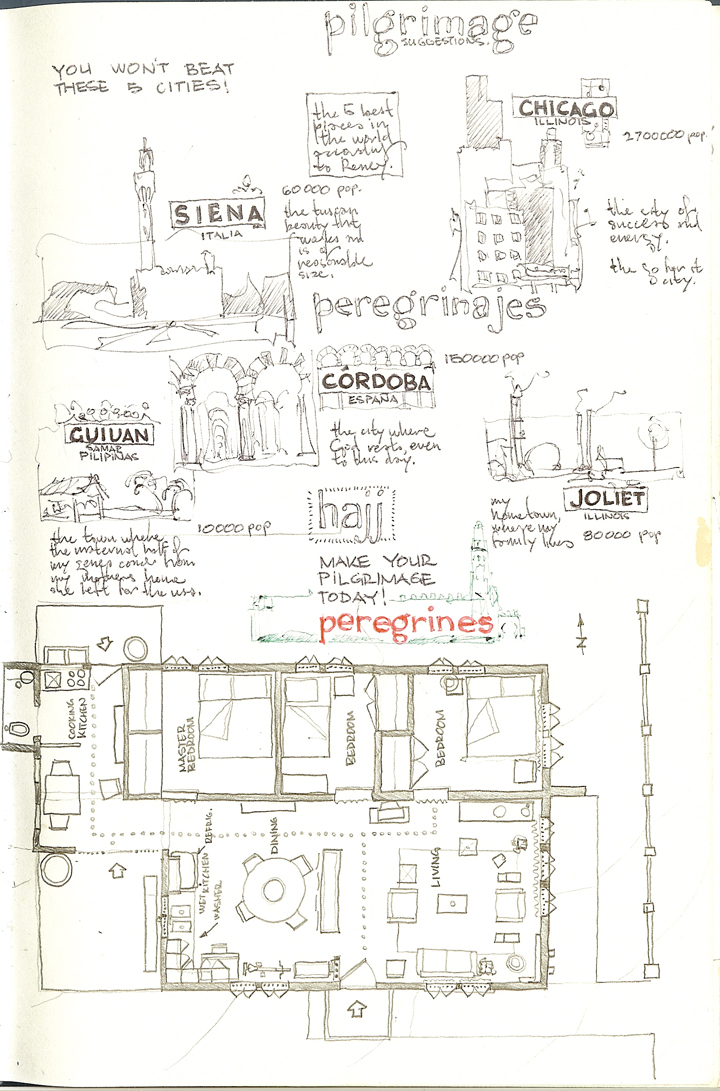 pilgrimage
SUGGESTIONS.
YOU WON'T BEAT
THESE 5 CITIES!
the 5 best
places in
the world
according
to Renee.
CHICAGO
ILLINOIS
2700000 pop.
the city of
success and
energy.
the go for it
city.
SIENA
ITALIA
60000 pop.
the tuscan
beauty that
works and
is of
reasonable
size.
peregrinajes
CÓRDOBA
ESPAÑA
150000 pop
the city where
God rests, even
to this day.
GUIUAN
SAMAR
PILIPINAS
10000 pop
the town where
the maternal half of
my genes come from
my mothers home
she left for the usa.
JOLIET
ILLINOIS
80000 pop
my
hometown,
where my
family lives
hajj
MAKE YOUR
PILGRIMAGE
TODAY!
peregrines
N
COOKING
KITCHEN
MASTER
BEDROOM
BEDROOM
BEDROOM
REFRIG.
WET KITCHEN
WASHER
DINING
LIVING